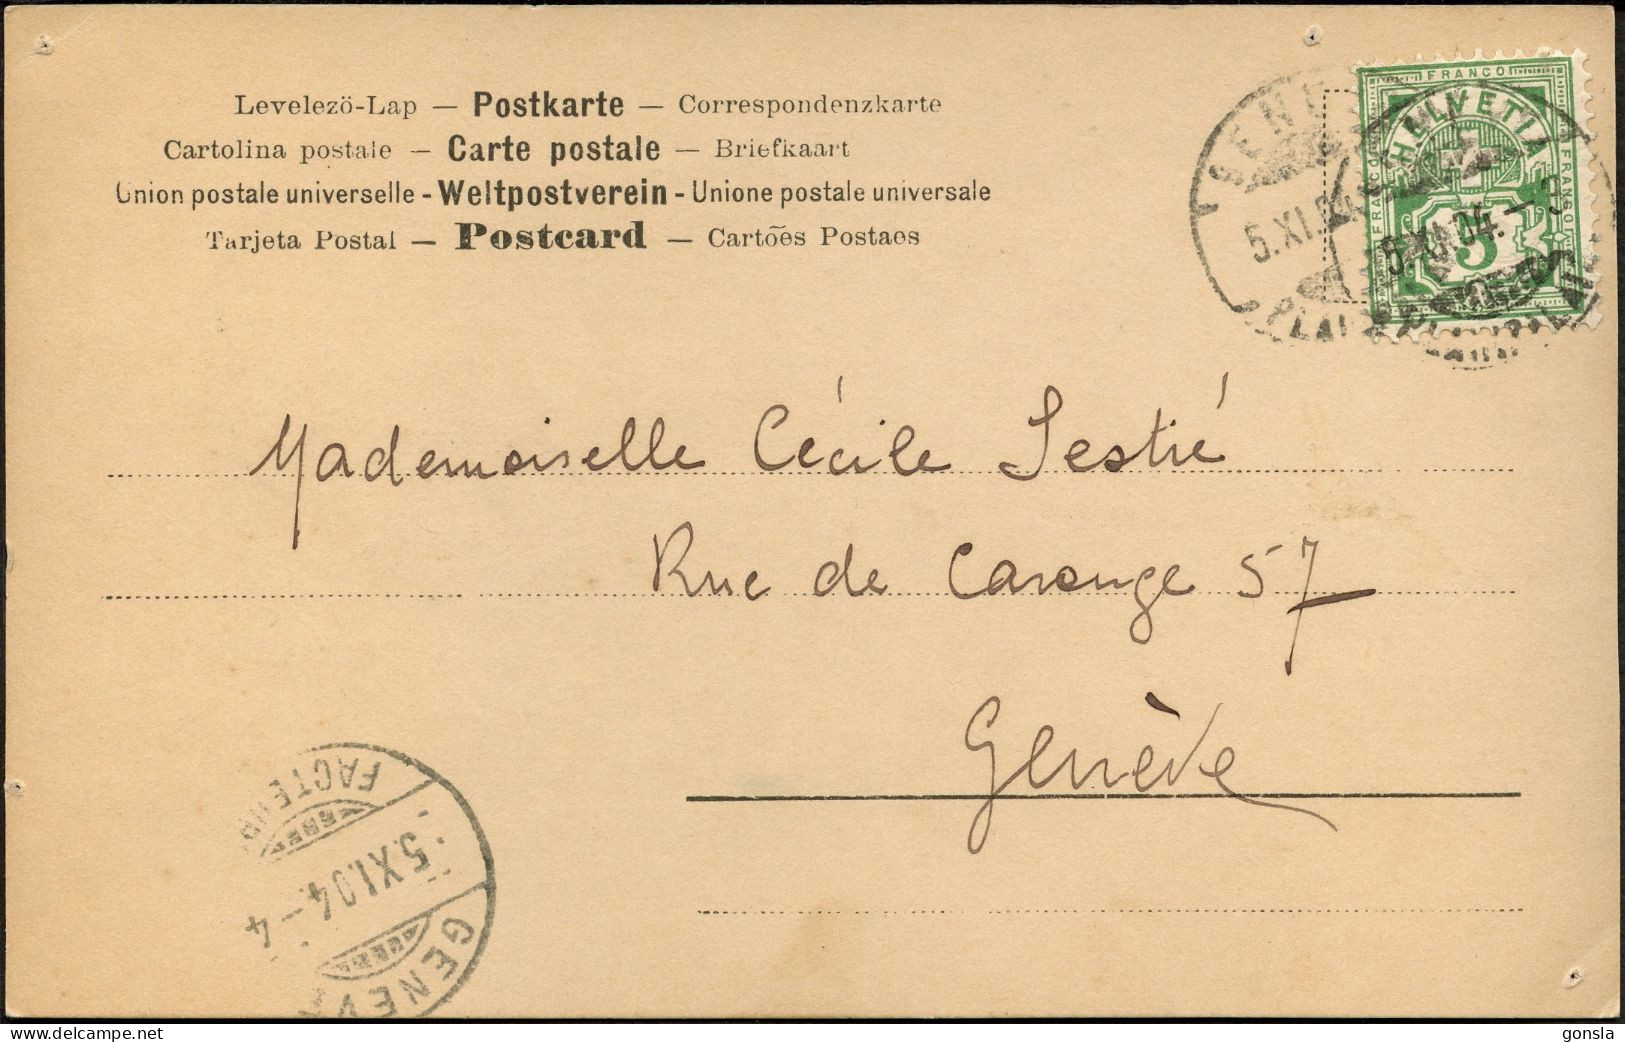 Levelezö-Lap — Postkarte — Correspondenzkarte
Cartolina postale — Carte postale — Briefkaart
Union postale universelle - Weltpostverein - Unione postale universale
Tarjeta Postal — Postcard — Cartões Postaos
FRANCO
HELVETIA
FRANCO
FRANCO
5
5.XI.04
5.XI.04.-3
Mademoiselle Cécile Sestié
Rue de Carouge 57
Genève
FACTEUR
5.XI.04.-4
GENEV
gonsla